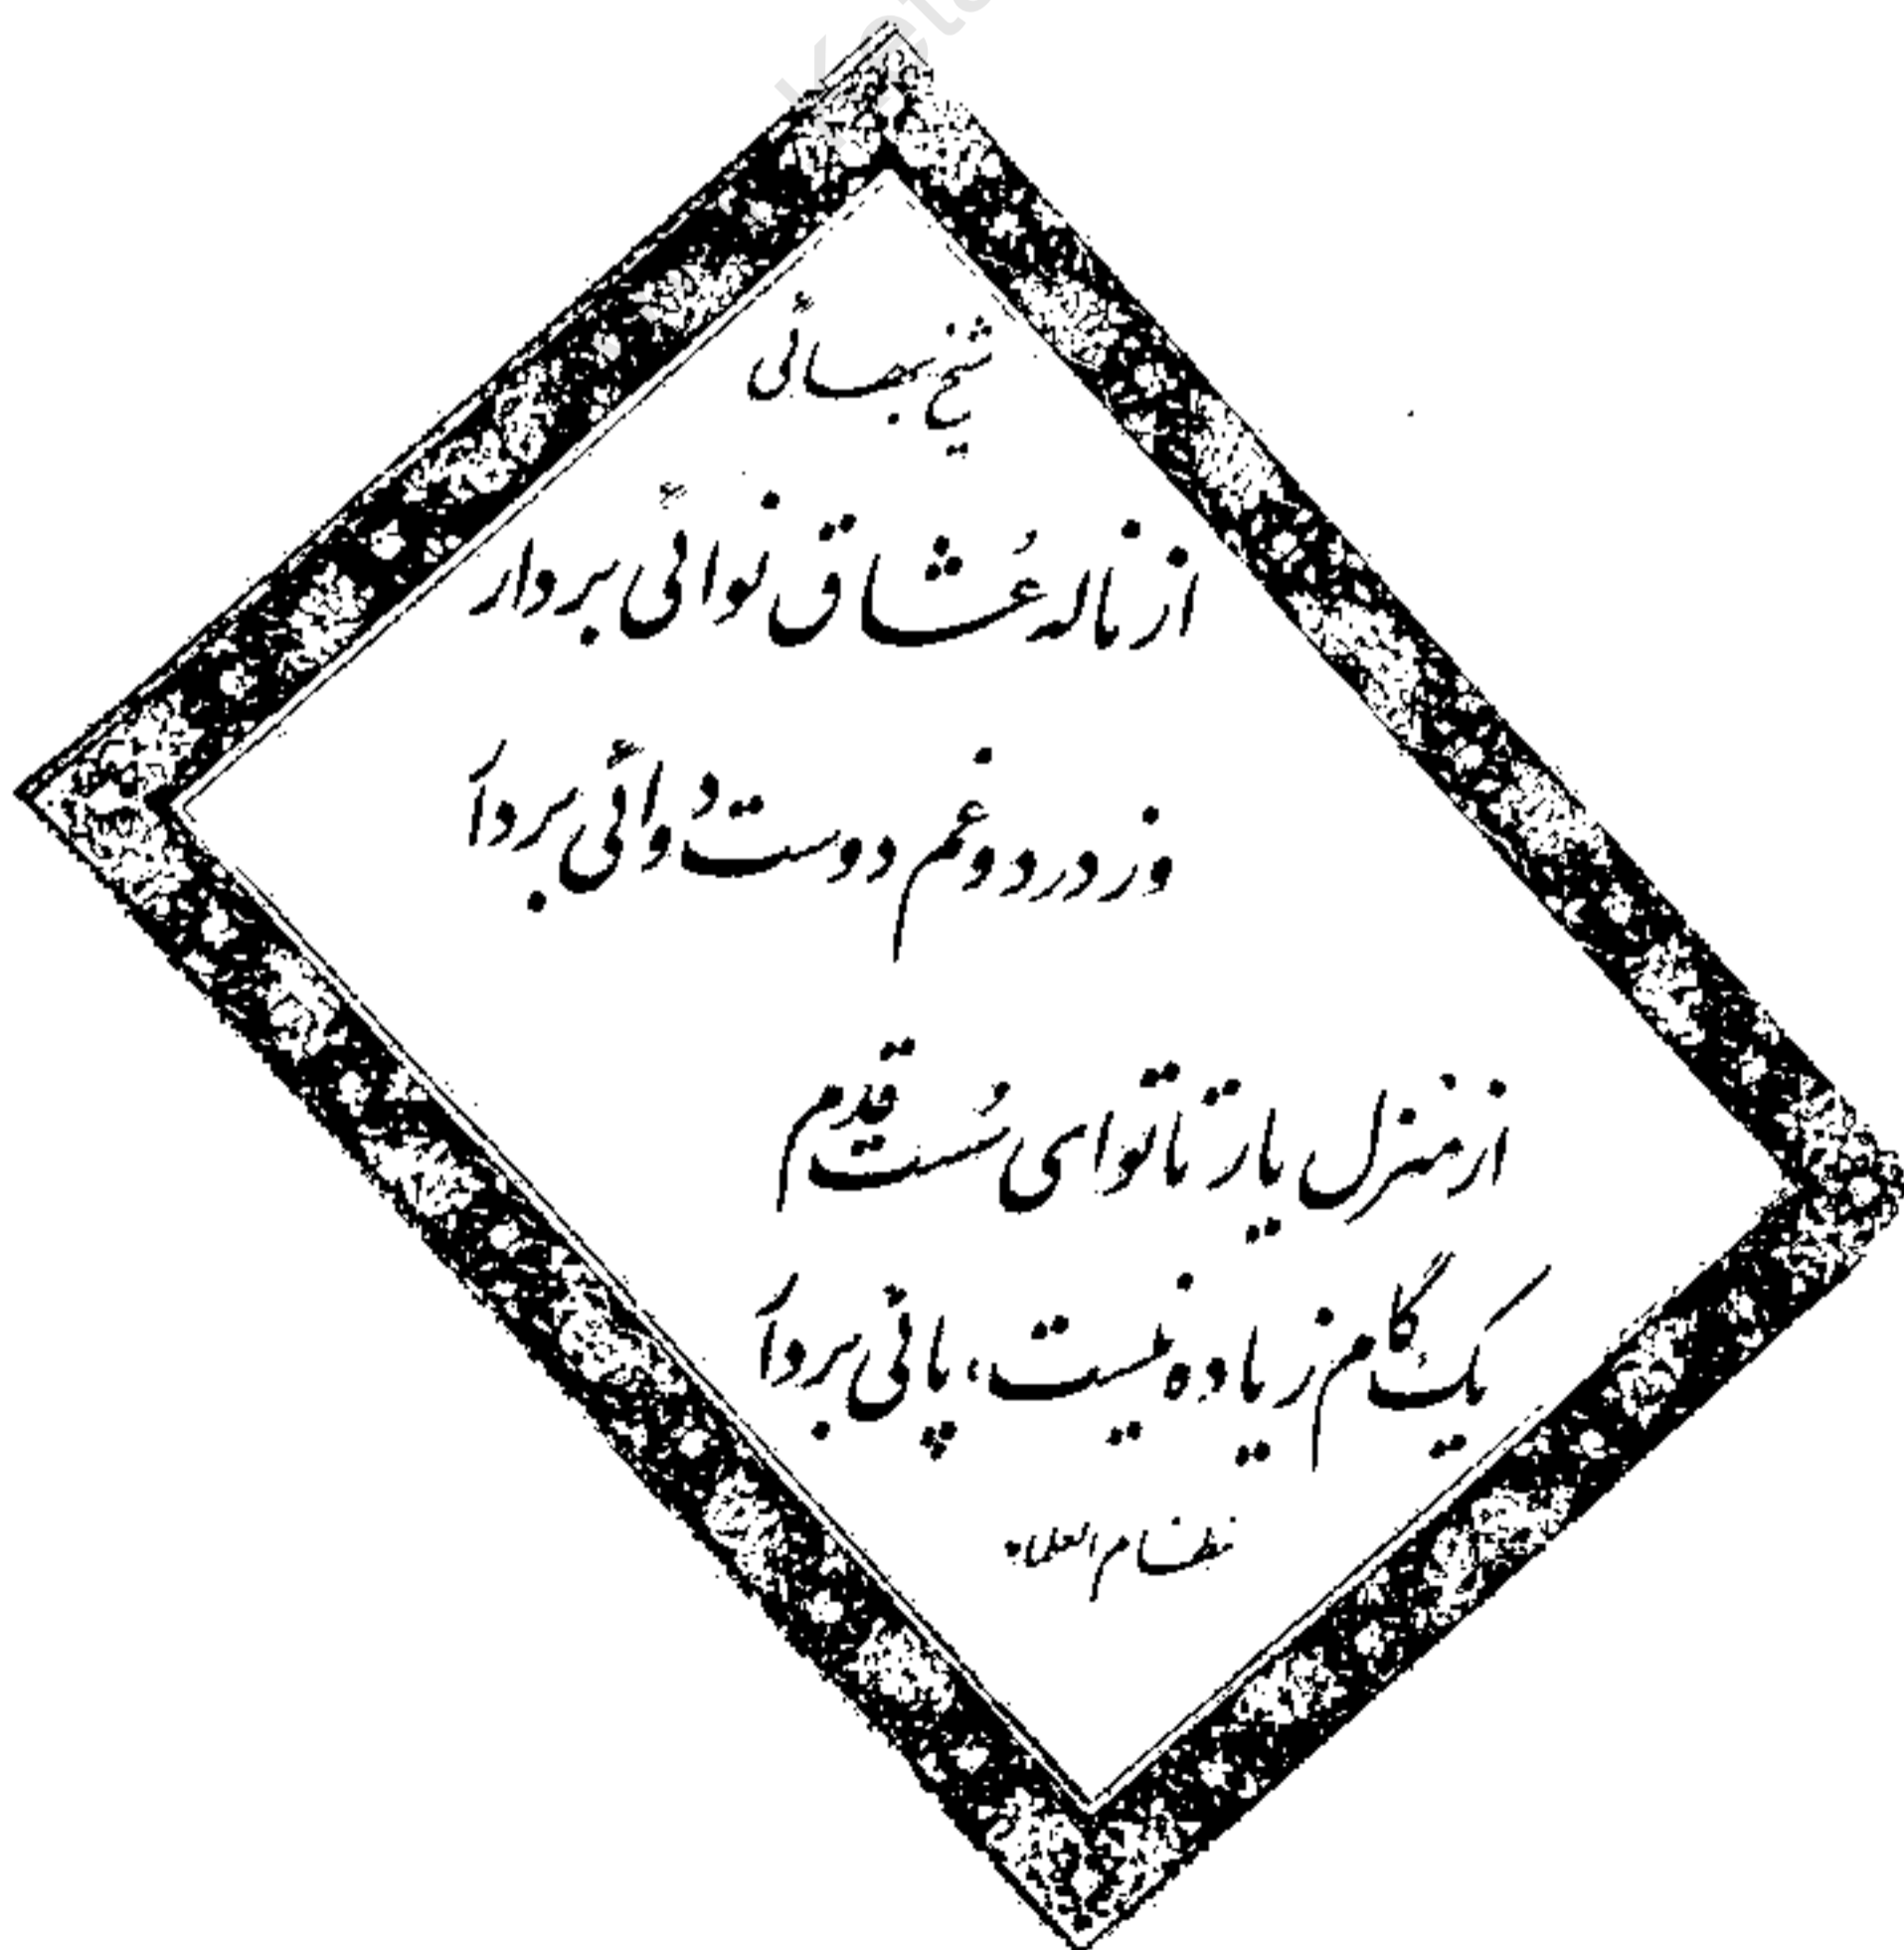 شیخ بهائی
از ناله عُشاق نوائی بردار
وز درد و غم دوست دُوائی بردار
از منزل یار تا تو ای سُست قدم
یک گام زیاده نیست، پائی بردار
نظام العلماء